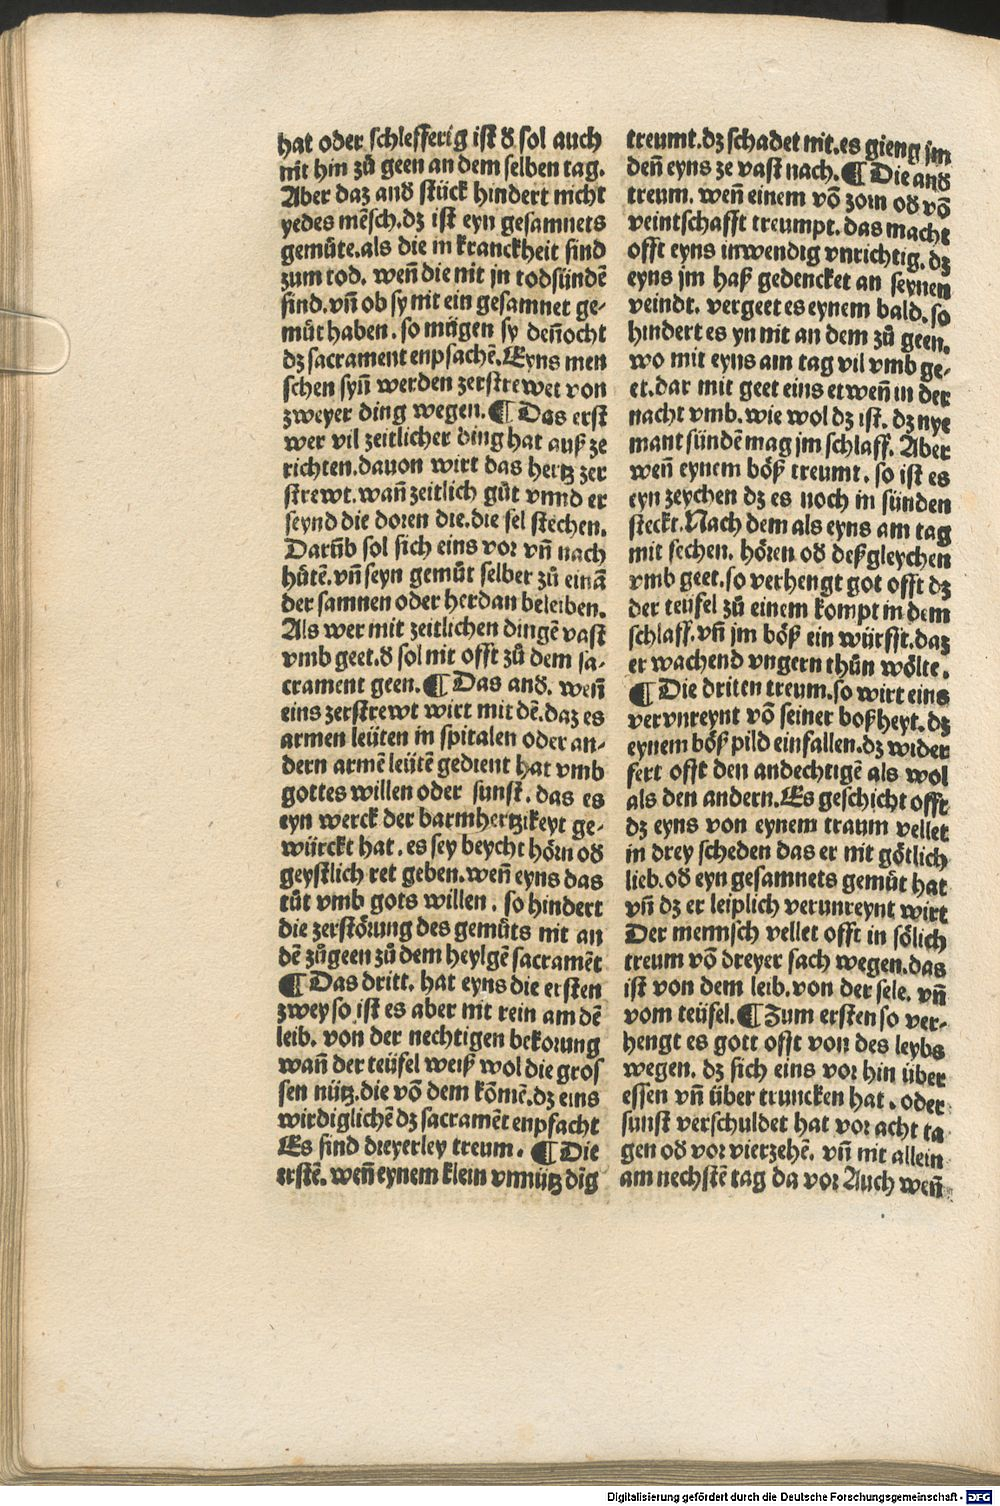 hat oder schlefferig ist ð sol auch
nit hin zů geen an dem selben tag.
Aber daz anð stück hindert nicht
yedes mēsch. dz ist eyn gesamnets
gemüte. als die in kranckheit sind
zum tod. weñ die nit jn todsündē
sind. vñ ob sy nit ein gesamnet ge-
müt haben. so mügen sy deñocht
dz sacrament enpfachē. Eyns men
schen syñ werden zerstrewet von
zweyer ding wegen. ¶ Das erst
wer vil zeitlicher ding hat auß ze
richten. dauon wirt das hertz zer
strewt. wañ zeitlich gůt vnnd er
seynd die doren die. die sel stechen.
Darūb sol sich eins vor vñ nach
hůtē. vñ seyn gemůt selber zů einā
der samnen oder herdan beleiben.
Als wer mit zeitlichen dingē vast
vmb geet. ð sol nit offt zů dem sa-
crament geen. ¶ Das anð. weñ
eins zerstrewt wirt mit dē. daz es
armen leüten in spitalen oder an-
dern armē leütē gedient hat vmb
gottes willen oder sunst. das es
eyn werck der barmhertzikeyt ge-
würckt hat. es sey beycht hörn oð
geystlich ret geben. weñ eyns das
tůt vmb gots willen. so hindert
die zerstörung des gemůts nit an
dē zůgeen zů dem heylgē sacramēt
¶ Das dritt. hat eyns die ersten
zwey so ist es aber nit rein am dē
leib. von der nechtigen bekorung
wañ der teüfel weiß wol die gros
sen nütz. die vō dem kōmē. dz eins
wirdiglichē dz sacramēt enpfacht
Es sind dreyerley treum. ¶ Die
erstē. weñ eynem klein vnnütz dīg
treumt. dz schadet nit. es gieng jm
deñ eyns ze vast nach. ¶ Die anð
treum. weñ einem vō zorn oð vō
veintschafft treumpt. das macht
offt eyns inwendig vnrichtig. dz
eyns jm haß gedencket an seynen
veindt. vergeet es eynem bald. so
hindert es yn nit an dem zů geen.
wo mit eyns am tag vil vmb ge-
et. dar mit geet eins etweñ in der
nacht vmb. wie wol dz ist. dz nye
mant sündē mag jm schlaff. Aber
weñ eynem böß treumt. so ist es
eyn zeychen dz es noch in sünden
steckt. Nach dem als eyns am tag
mit sechen. hören oð deßgleychen
vmb geet. so verhengt got offt dz
der teüfel zů einem kompt in dem
schlaff. vñ jm böß ein würfft. daz
er wachend vngern thůn wölte.
¶ Die driten treum. so wirt eins
vervnreynt vō seiner boßheyt. dz
eynem böß pild einfallen. dz wider
fert offt den andechtigē als wol
als den andern. Es geschicht offt
dz eyns von eynem traum vellet
in drey scheden das er nit götlich
lieb. oð eyn gesamnets gemůt hat
vñ dz er leiplich verunreynt wirt
Der mennsch vellet offt in sölich
treum vō dreyer sach wegen. das
ist von dem leib. von der sele. vñ
vom teüfel. ¶ Zum ersten so ver-
hengt es gott offt von des leybs
wegen. dz sich eins vor hin über
essen vñ über truncken hat. oder
sunst verschuldet hat vor acht ta
gen oð vor vierzehē. vñ nit allein
am nechstē tag da vor Auch weñ
Digitalisierung gefördert durch die Deutsche Forschungsgemeinschaft - DFG